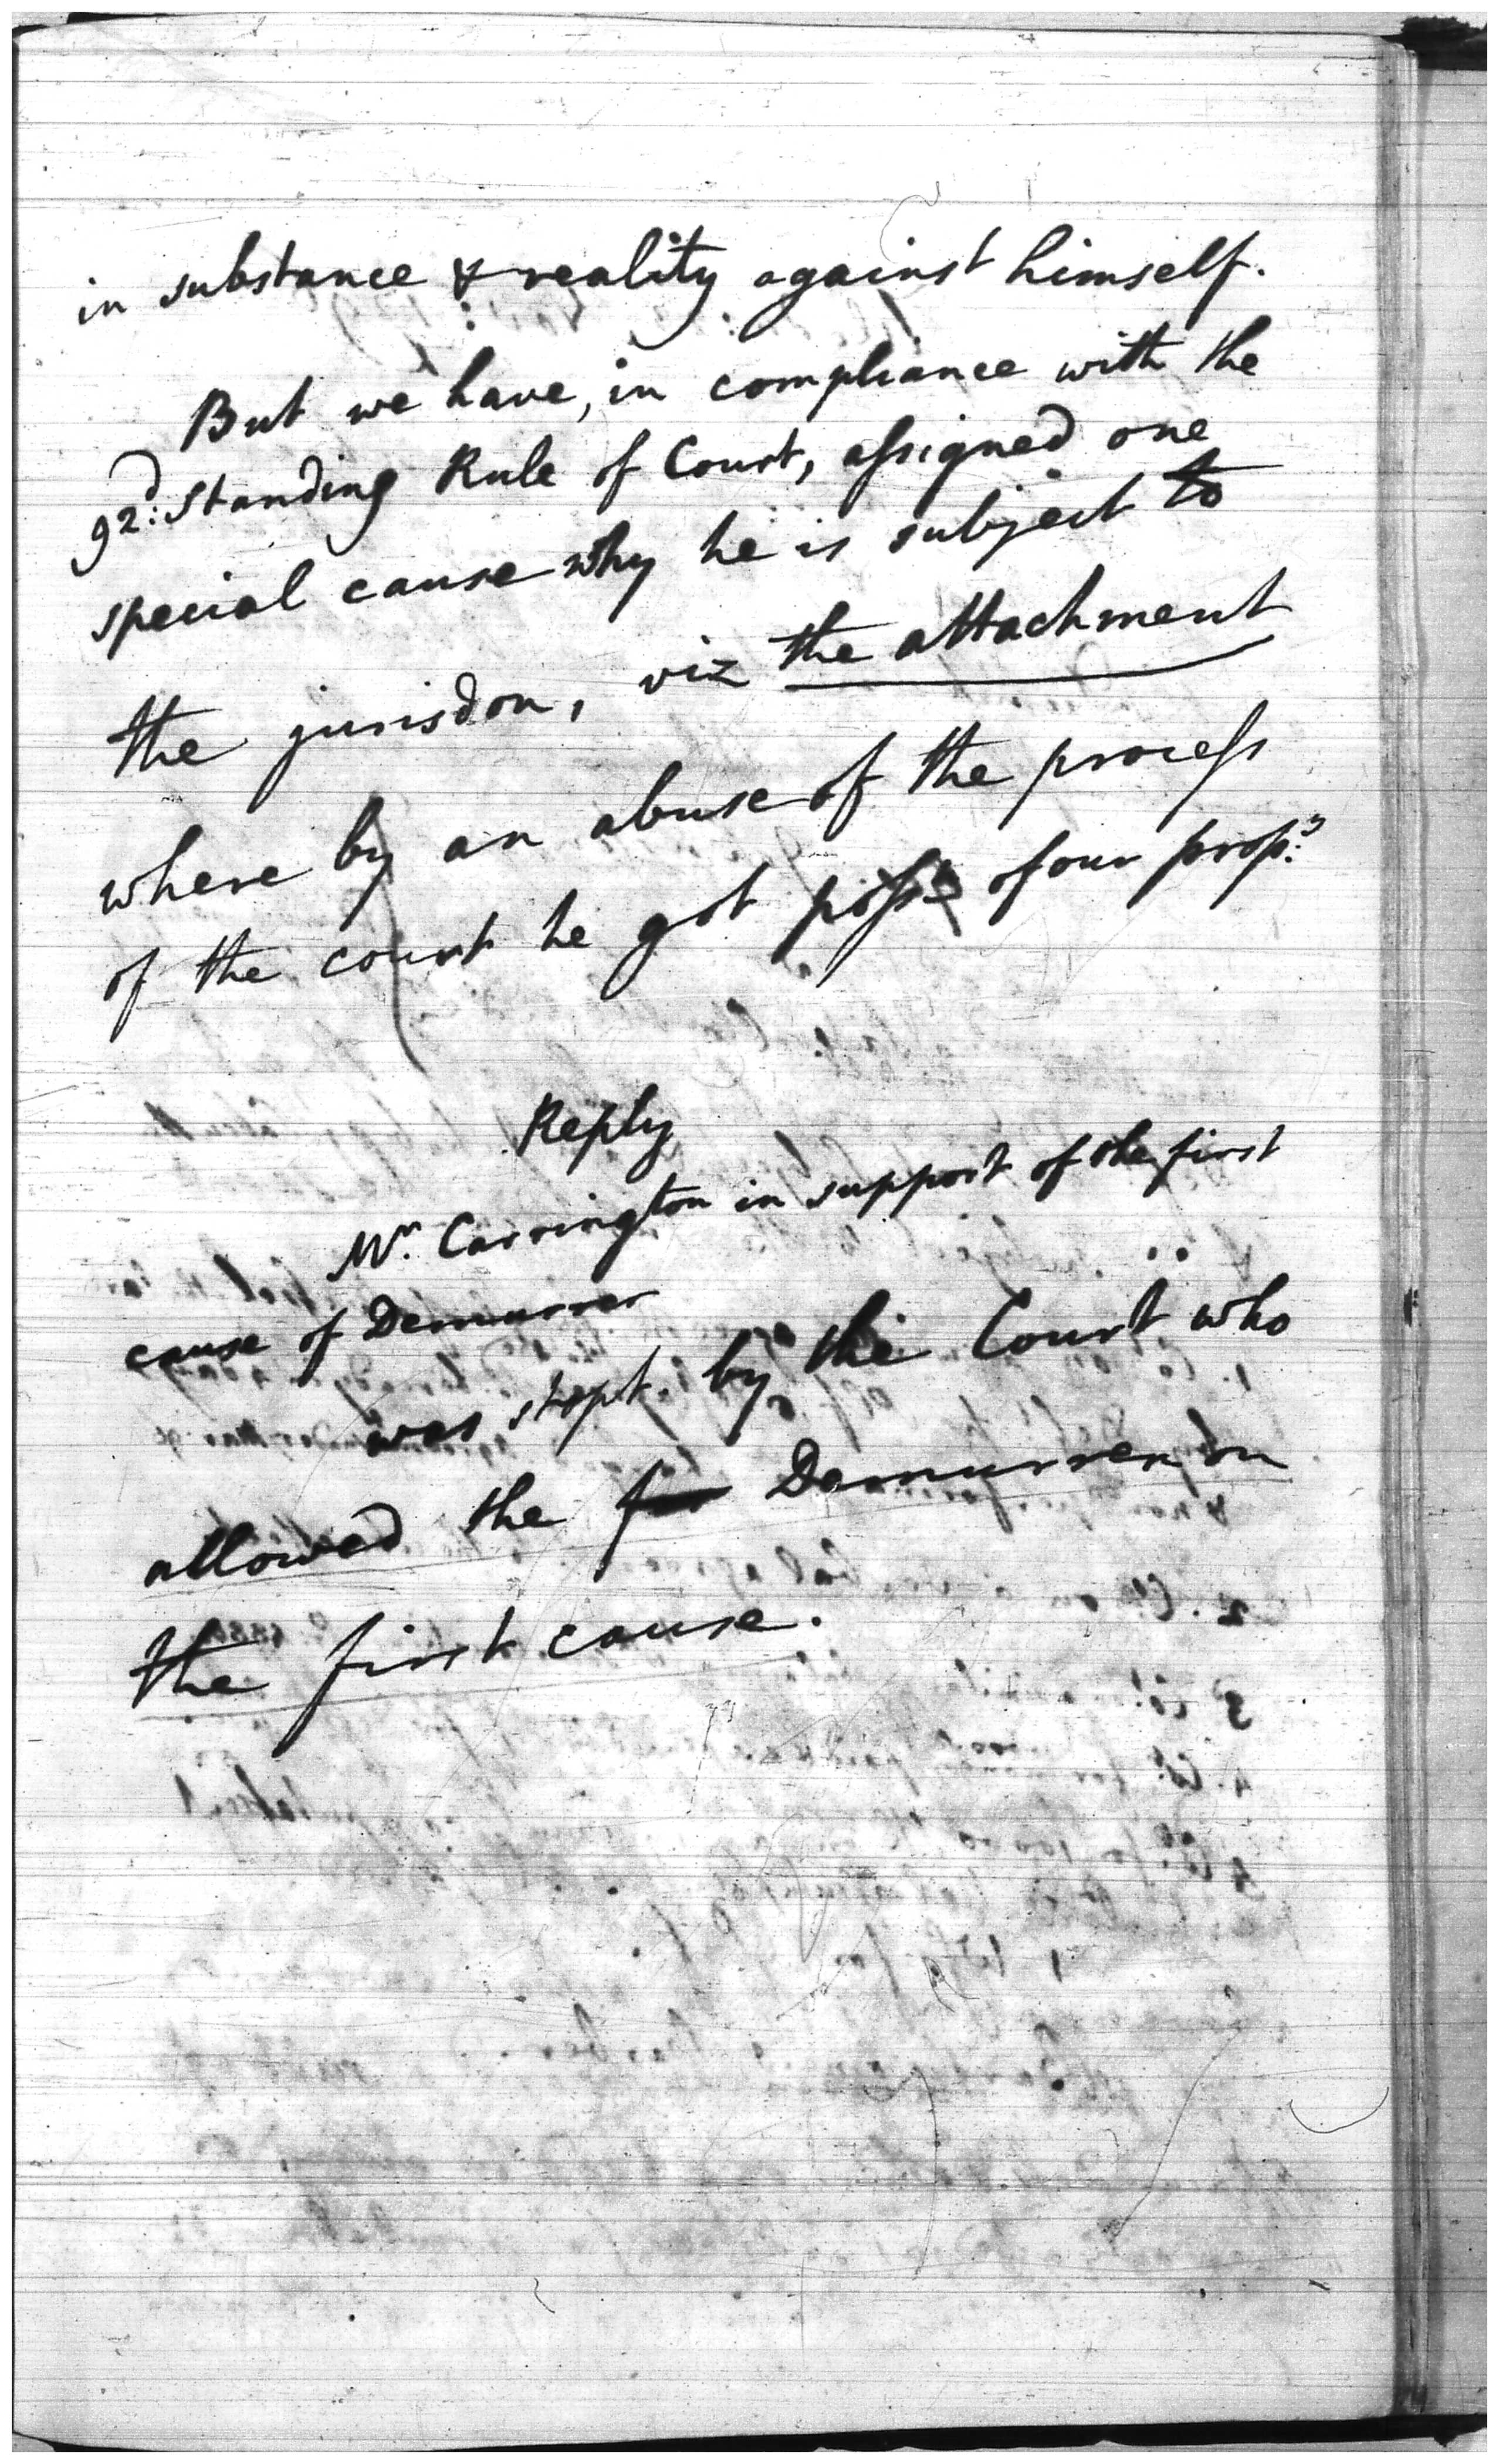 in substance & reality against himself.
But we have, in compliance with the
92d: Standing Rule of Court, assigned one
special cause why he is subject to
the jurisdon, viz the attachment
where by an abuse of the process
of the court he got possn of our propy
Reply
Mr. Carrington in support of the first
cause of Demurrer
was stopt. by the Court who
allowed the Demurrer on
the first cause.